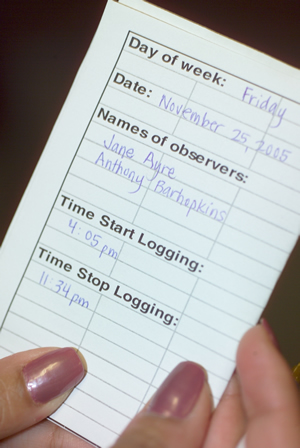 Day of week: Friday
Date: November 25, 2005
Names of observers:
Jane Ayre
Anthony Barhopkins
Time Start Logging:
4:05pm
Time Stop Logging:
11:34pm